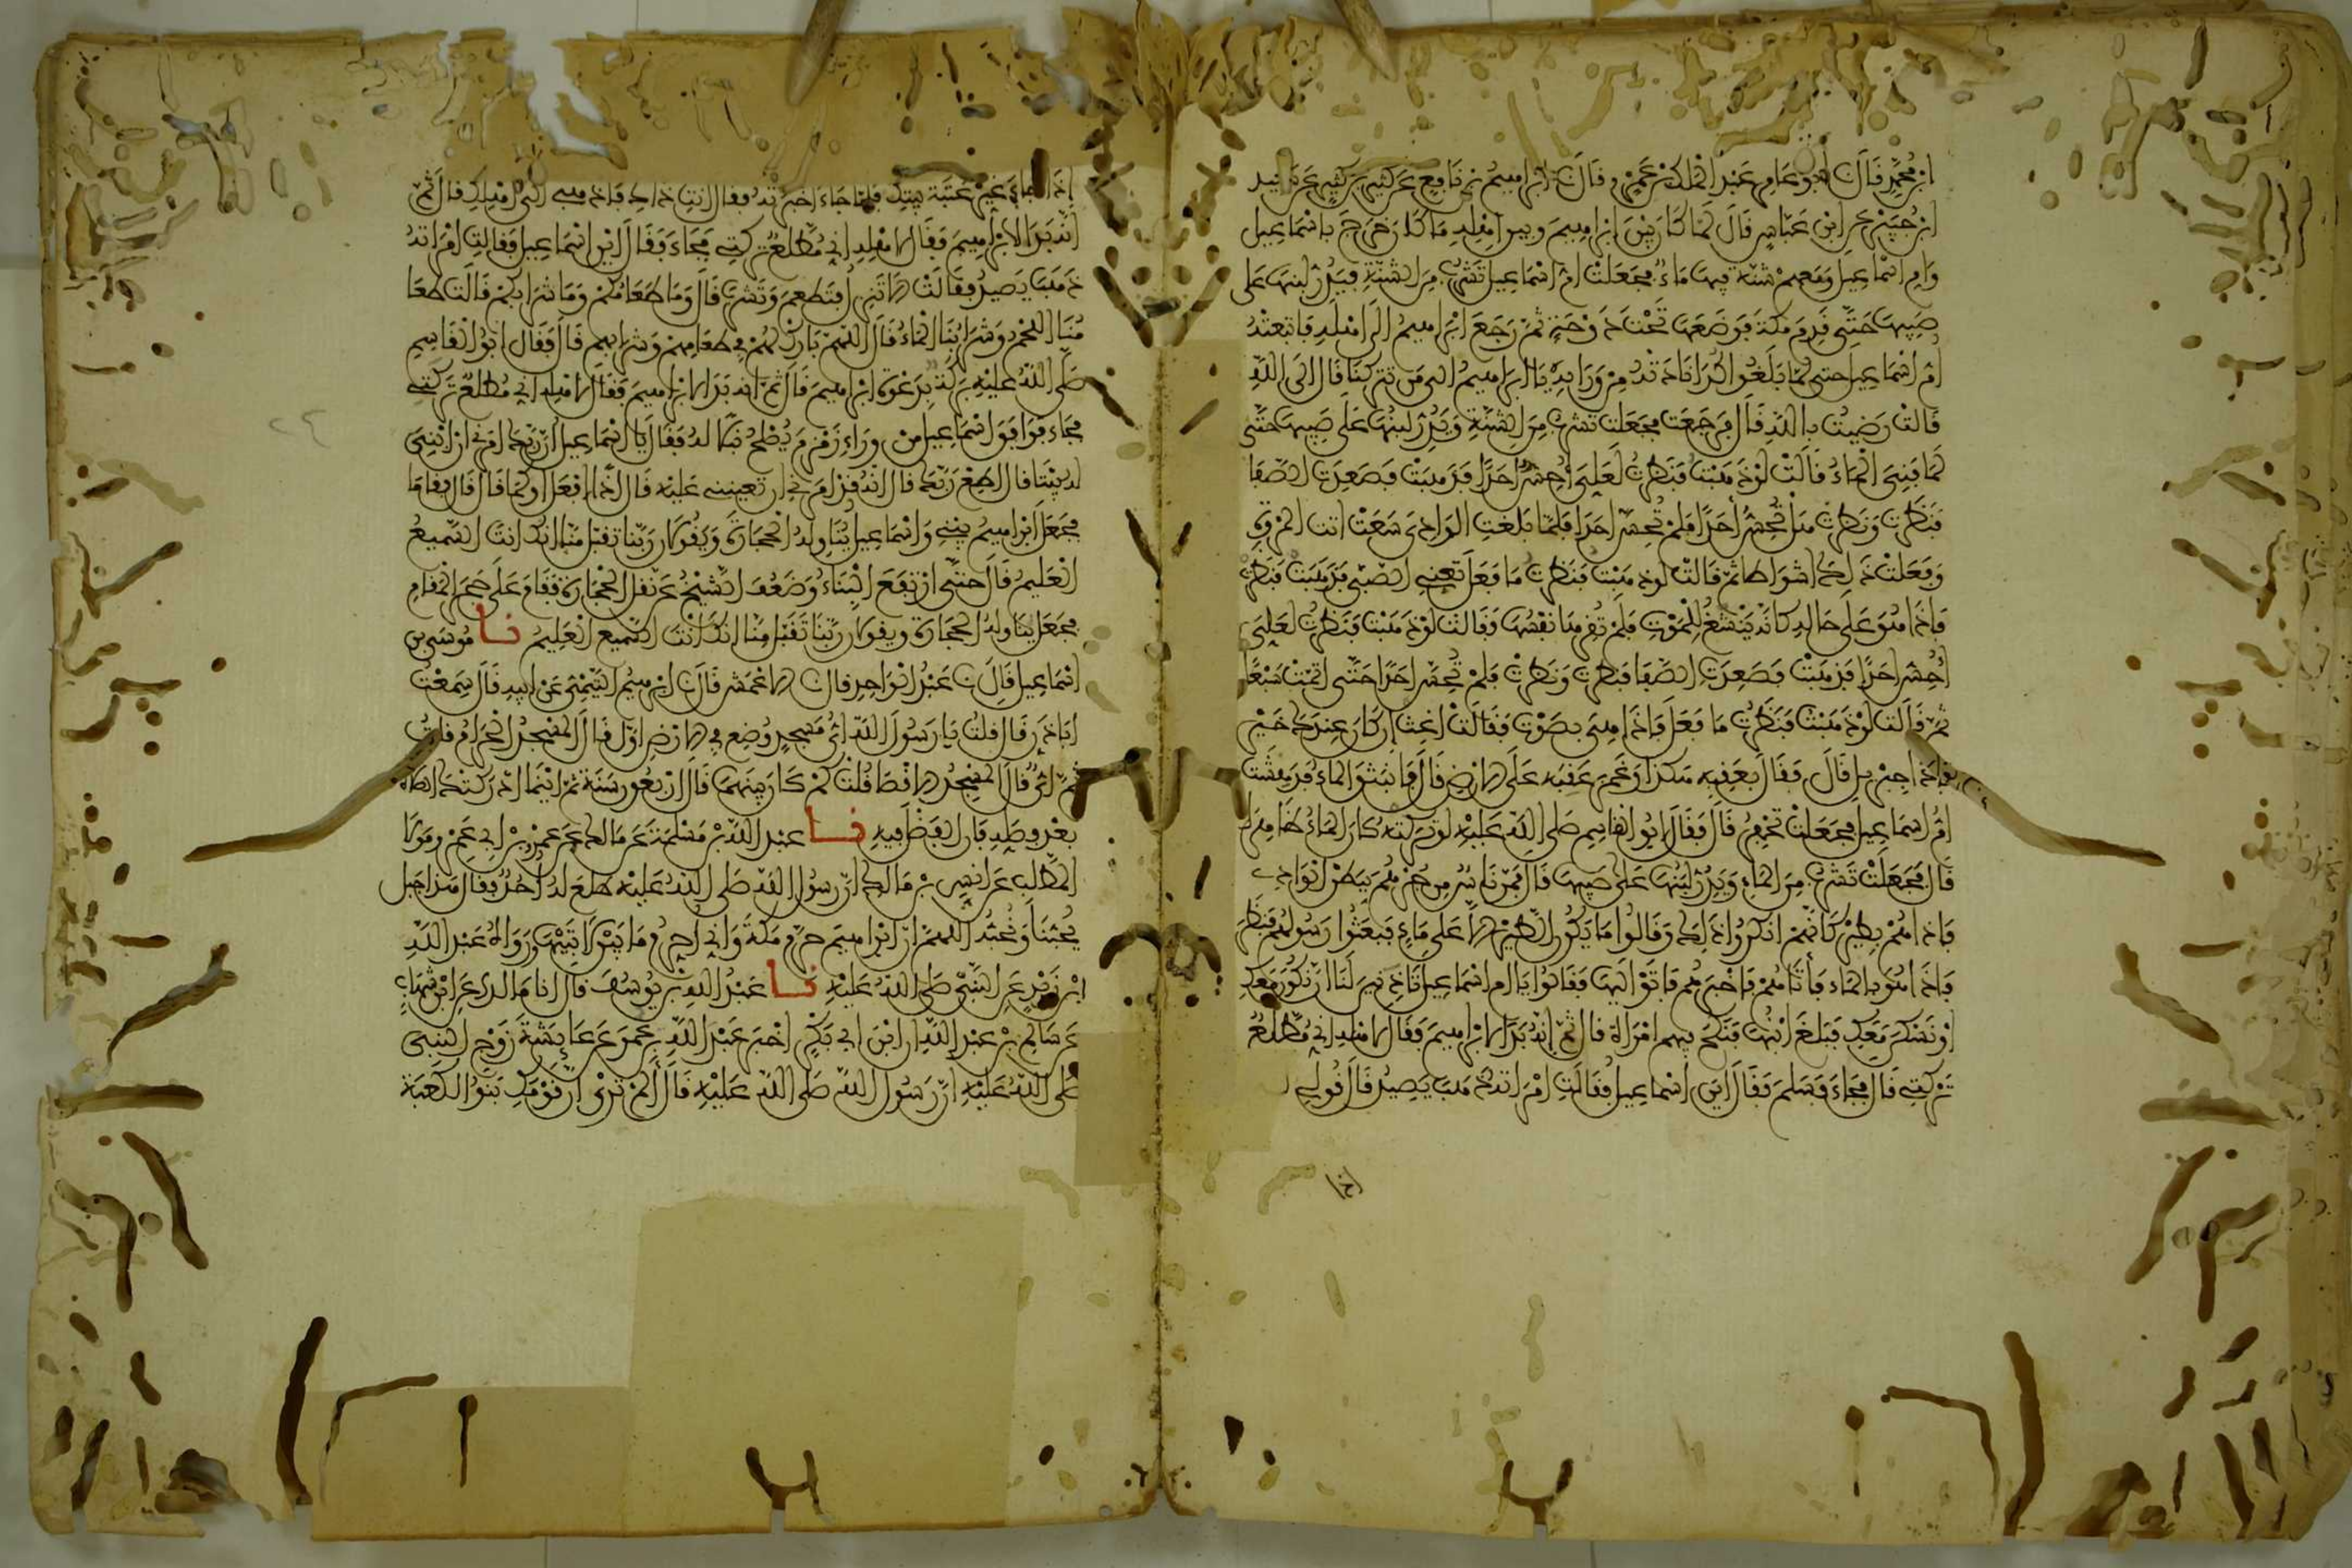 ابن محمد قال نا ابو عامر عبد الملك بن عمرو قال نا ابراهيم بن نافع عن كثير بن كثير عن سعيد
ابن جبير عن ابن عباس قال لما كان بين ابراهيم وبين اهله ما كان خرج باسماعيل
وام اسماعيل ومعهم شنة فيها ماء فجعلت ام اسماعيل تشرب من الشنة فيدر لبنها على
صبيها حتى قدم مكة فوضعها تحت دوحة ثم رجع ابراهيم الى اهله فاتبعته
ام اسماعيل حتى لما بلغوا كدا نادته من ورايه يا ابراهيم الى من تتركنا قال الى الله
قالت رضيت بالله قال فرجعت فجعلت تشرب من الشنة ويدر لبنها على صبيها حتى
لما فني الماء قالت لو ذهبت فنظرت لعلي احس احدا فذهبت فصعدت الصفا
فنظرت ونظرت هل تحس احدا فلم تحس احدا فلما بلغت الوادي سعت اتت المروة
وفعلت ذلك اشواطا ثم قالت لو ذهبت فنظرت ما فعل تعني الصبي فذهبت فنظرت
فاذا هو على حاله كانه ينشغ للموت فلم تقرها نفسها فقالت لو ذهبت فنظرت لعلي
احس احدا فذهبت فصعدت الصفا فنظرت ونظرت فلم تحس احدا حتى اتمت سبعا
ثم قالت لو ذهبت فنظرت ما فعل فاذا هي بصوت فقالت اغث ان كان عندك خير
فاذا جبريل قال فقال بعقبه هكذا وغمز عقبه على الارض قال فانبثق الماء فدهشت
ام اسماعيل فجعلت تحفر قال فقال ابو القاسم صلى الله عليه لو تركته كان الماء ظاهرا
قال فجعلت تشرب من الماء ويدر لبنها على صبيها قال فمر ناس من جرهم ببطن الوادي
فاذا هم بطير كانهم انكروا ذلك وقالوا ما يكون الطير الا على ماء فبعثوا رسولهم فنظر
فاذا هو بالماء فاتاهم فاخبرهم فاتوا اليها فقالوا يا ام اسماعيل تاذنين لنا ان نكون معك
او نسكن معك فبلغ ابنها فنكح فيهم امراة قال ثم انه بدا لابراهيم فقال لاهله اني مطلع
تركتي قال فجاء فسلم فقال اين اسماعيل فقالت امراته ذهب يصيد قال قولي
اذا
اذا جاء غير عتبة بيتك فلما جاء اخبرته فقال انت ذاك فاذهبي الى اهلك قال ثم
انه بدا لابراهيم فقال لاهله اني مطلع تركتي فجاء فقال اين اسماعيل فقالت امراته
ذهب يصيد فقالت الا تنزل فتطعم وتشرب قال وما طعامكم وما شرابكم قالت طعا
منا اللحم وشرابنا الماء قال اللهم بارك لهم في طعامهم وشرابهم قال فقال ابو القاسم
صلى الله عليه بركة بدعوة ابراهيم قال ثم انه بدا لابراهيم فقال لاهله اني مطلع تركتي
فجاء فوافق اسماعيل من وراء زمزم يصلح نبلا له فقال يا اسماعيل ان ربك امرني ان ابني
له بيتا قال اطع ربك قال انه قد امرني ان تعينني عليه قال اذا افعل او كما قال قال فقاما
فجعل ابراهيم يبني واسماعيل يناوله الحجارة ويقولان ربنا تقبل منا انك انت السميع
العليم قال حتى ارتفع البناء وضعف الشيخ عن نقل الحجارة فقام على حجر المقام
فجعل يناوله الحجارة ويقولان ربنا تقبل منا انك انت السميع العليم نا موسى بن
اسماعيل قال نا عبد الواحد قال نا الاعمش قال نا ابراهيم التيمي عن ابيه قال سمعت
ابا ذر قال قلت يا رسول الله اي مسجد وضع في الارض اول قال المسجد الحرام قلت
ثم اي قال المسجد الاقصا قلت كم كان بينهما قال اربعون سنة ثم اينما ادركتك الصلاة
بعد فصله فان الفضل فيه نا عبد الله بن مسلمة عن مالك عن عمرو بن ابي عمرو مولى
المطلب عن انس بن مالك ان رسول الله صلى الله عليه طلع له احد فقال هذا جبل
يحبنا ونحبه اللهم ان ابراهيم حرم مكة واني احرم ما بين لابتيها ورواه عبد الله
ابن زيد عن النبي صلى الله عليه نا عبد الله بن يوسف قال انا مالك عن ابن شهاب
عن سالم بن عبد الله ان ابن ابي بكر اخبر عبد الله بن عمر عن عائشة زوج النبي
صلى الله عليه ان رسول الله صلى الله عليه قال الم تري ان قومك بنوا الكعبة